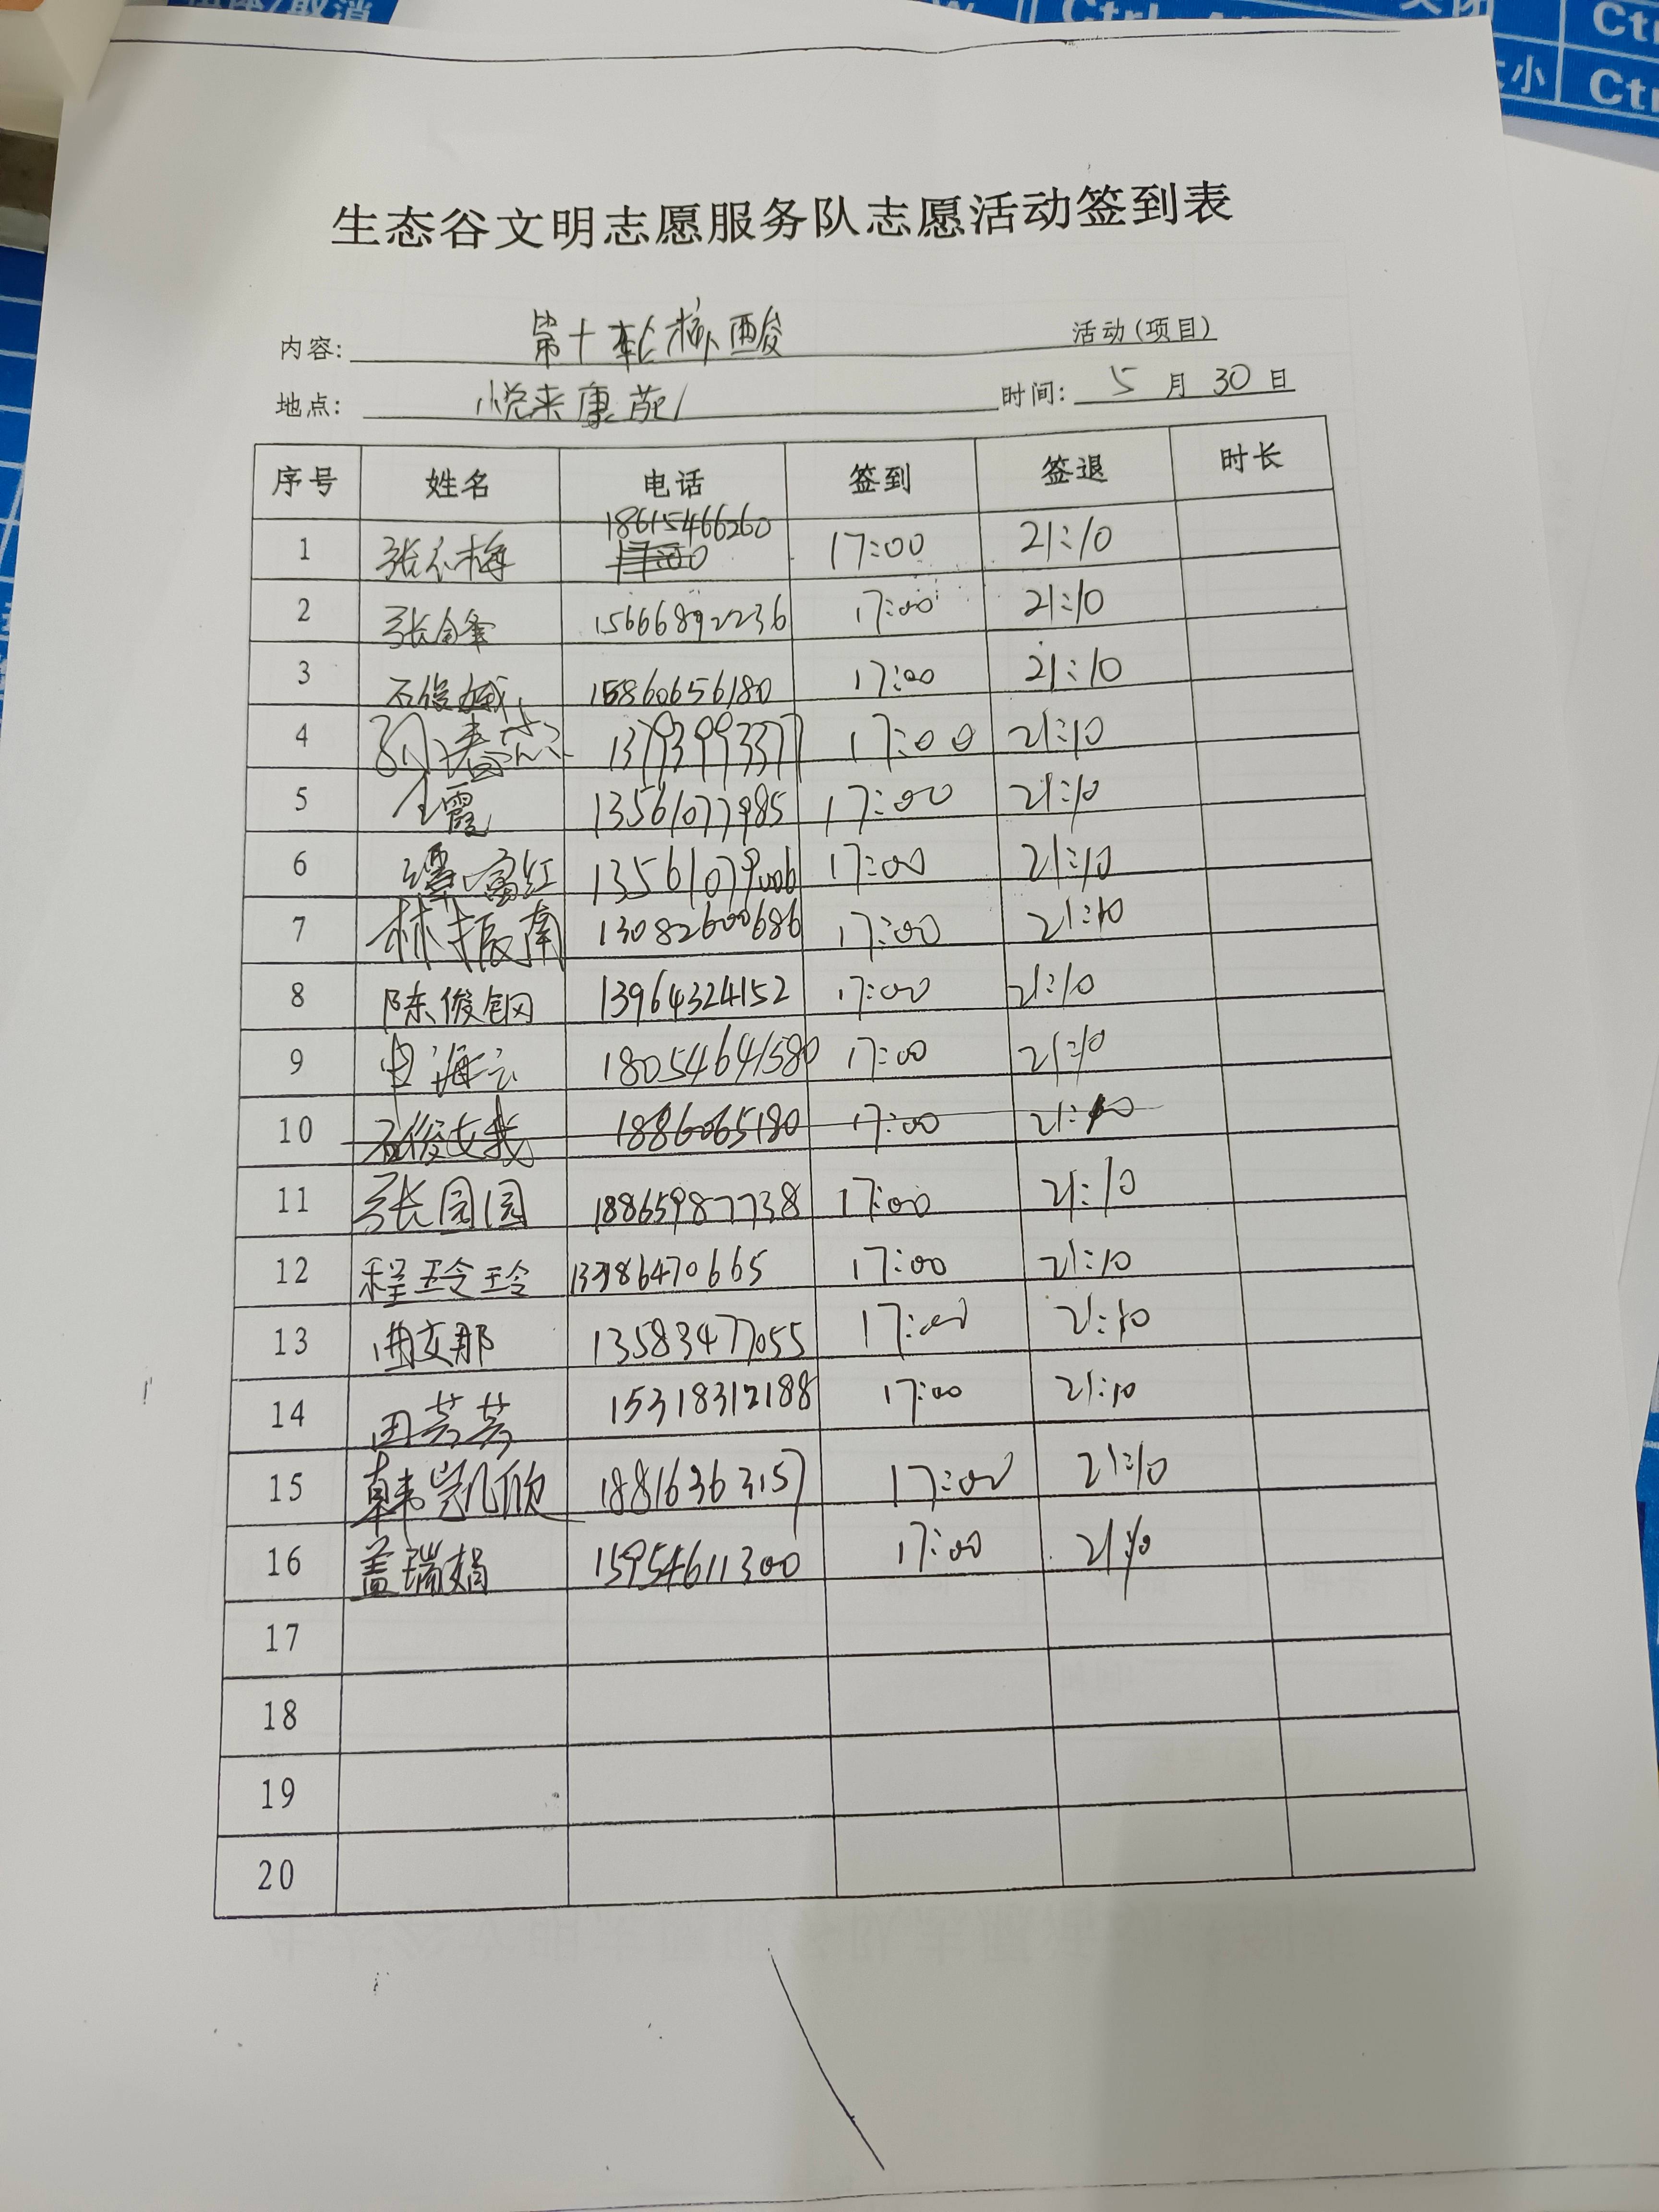 生态谷文明志愿服务队志愿活动签到表
内容: 第十轮核酸 活动(项目)
地点: 悦来康苑 时间: 5 月 30 日
序号 姓名 电话 签到 签退 时长
1 张 梅 18615466260 17:00 21:10
2 张 15666892236 17:00 21:10
3 石俊娥 15860656180 17:00 21:10
4 孙春燕 13793993377 17:00 21:10
5 霞 13561077985 17:00 21:10
6 谭富红 13561079006 17:00 21:10
7 林振南 13082600686 17:00 21:10
8 陈俊钢 13964324152 17:00 21:10
9 海云 18054641580 17:00 21:10
10 石俊娥 1886065180 17:00 21:10
11 张园园 18865987738 17:00 21:10
12 程玲玲 17:00 21:10
13 曲文那 13583477055 17:00 21:10
14 田芳芳 15318312188 17:00 21:10
15 韩凯欣 18816363157 17:00 21:10
16 盖瑞娟 15954611300 17:00 21:10
17
18
19
20